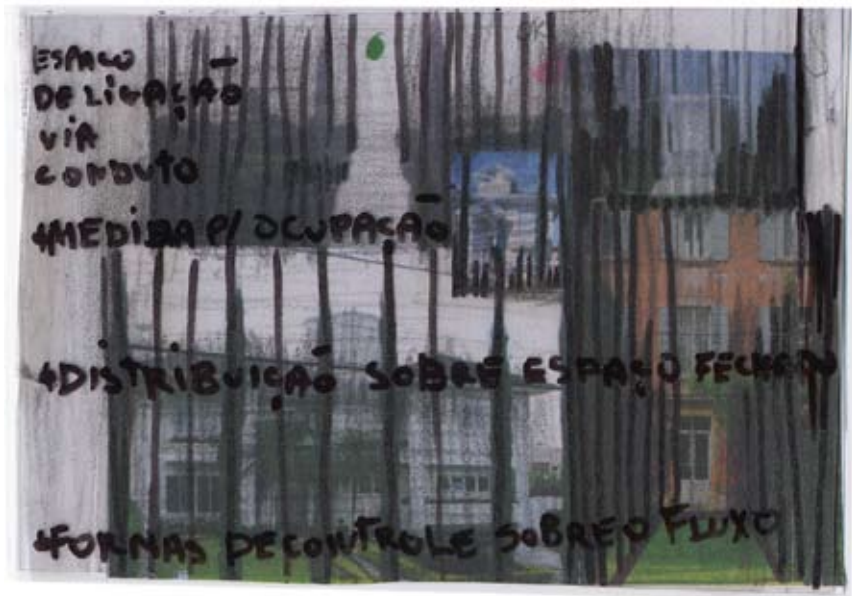 ESPAÇO
DE LIGAÇÃO
VIA
CONDUTO
+MEDIDA P/ OCUPAÇÃO
+DISTRIBUIÇÃO SOBRE ESPAÇO FECHADO
+FORMAS DE CONTROLE SOBRE O FLUXO